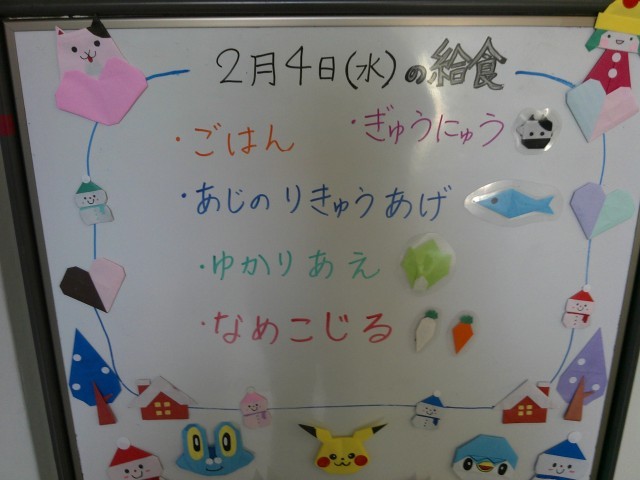 2月4日(水)の給食
・ごはん ・ぎゅうにゅう
・あじのりきゅうあげ
・ゆかりあえ
・なめこじる